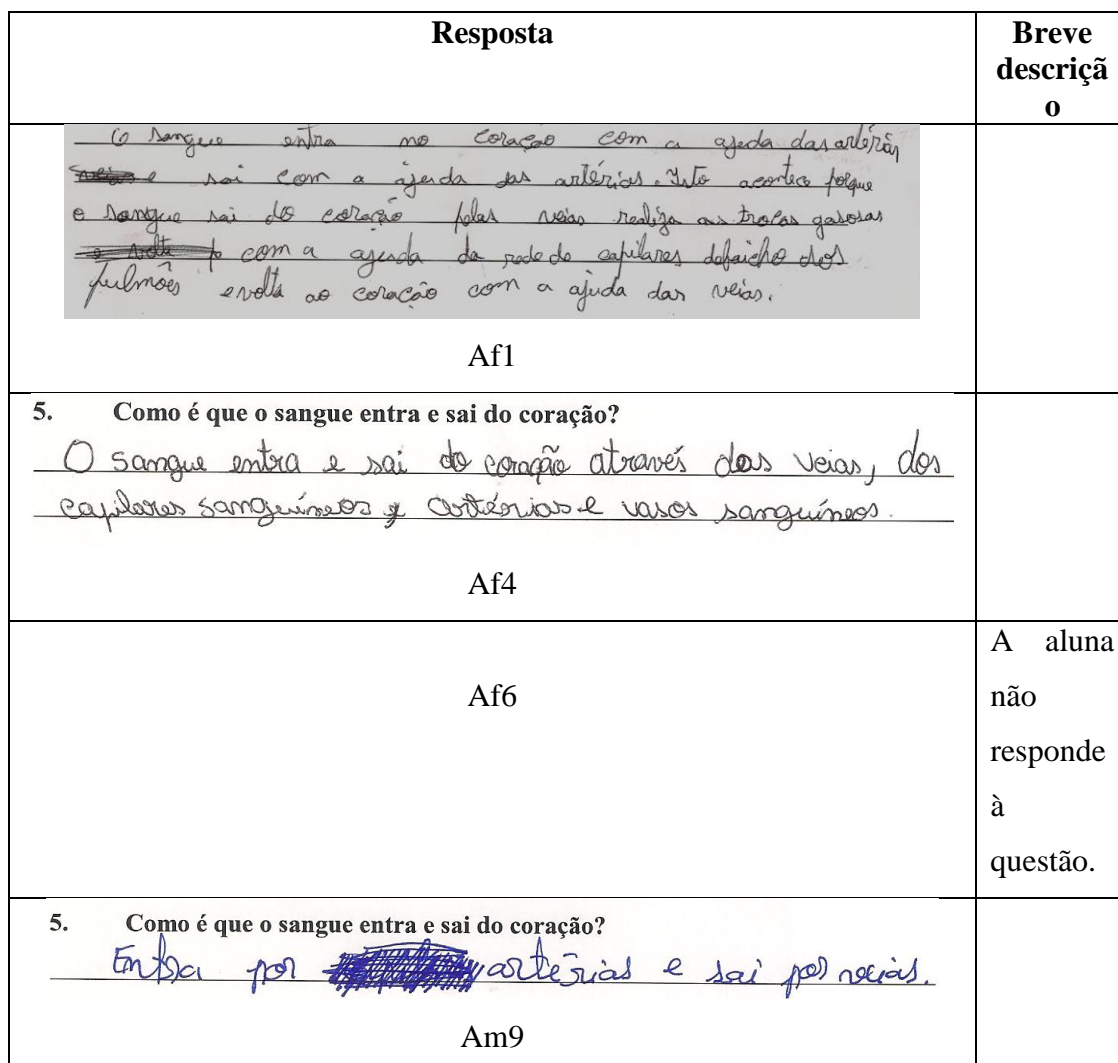 Resposta
Breve
descriçã
o
O sangue entra no coração com a ajuda das artérias
e sai com a ajuda das artérias. Isto acontece porque
o sangue sai do coração pelas veias realiza as trocas gasosas
com a ajuda da rede de capilares debaicho dos
pulmões e volta ao coração com a ajuda das veias.
Af1
5. Como é que o sangue entra e sai do coração?
O sangue entra e sai do coração através das veias, dos
capilares sanguíneos e artérias e vasos sanguíneos.
Af4
Af6
A aluna
não
responde
à
questão.
5. Como é que o sangue entra e sai do coração?
Entra por artérias e sai por veias.
Am9